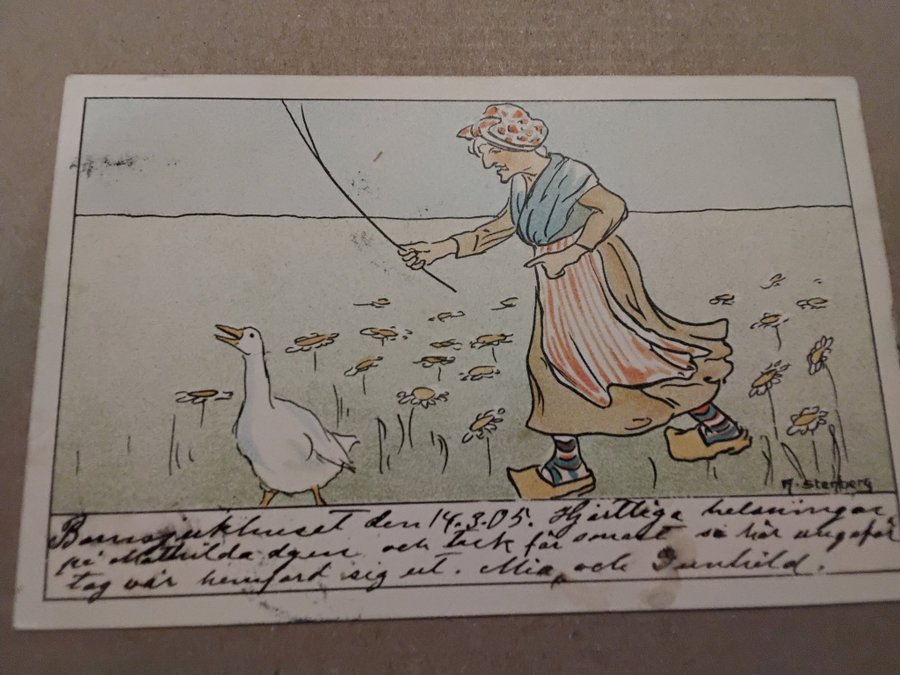 A. Stenberg
Barnsjukhuset den 14.3.05. Hjärtliga helsningar
på Mathilda dagen och tack för senast så här ungefär
tog vår hemfärd sig ut. Mia och Gunhild.